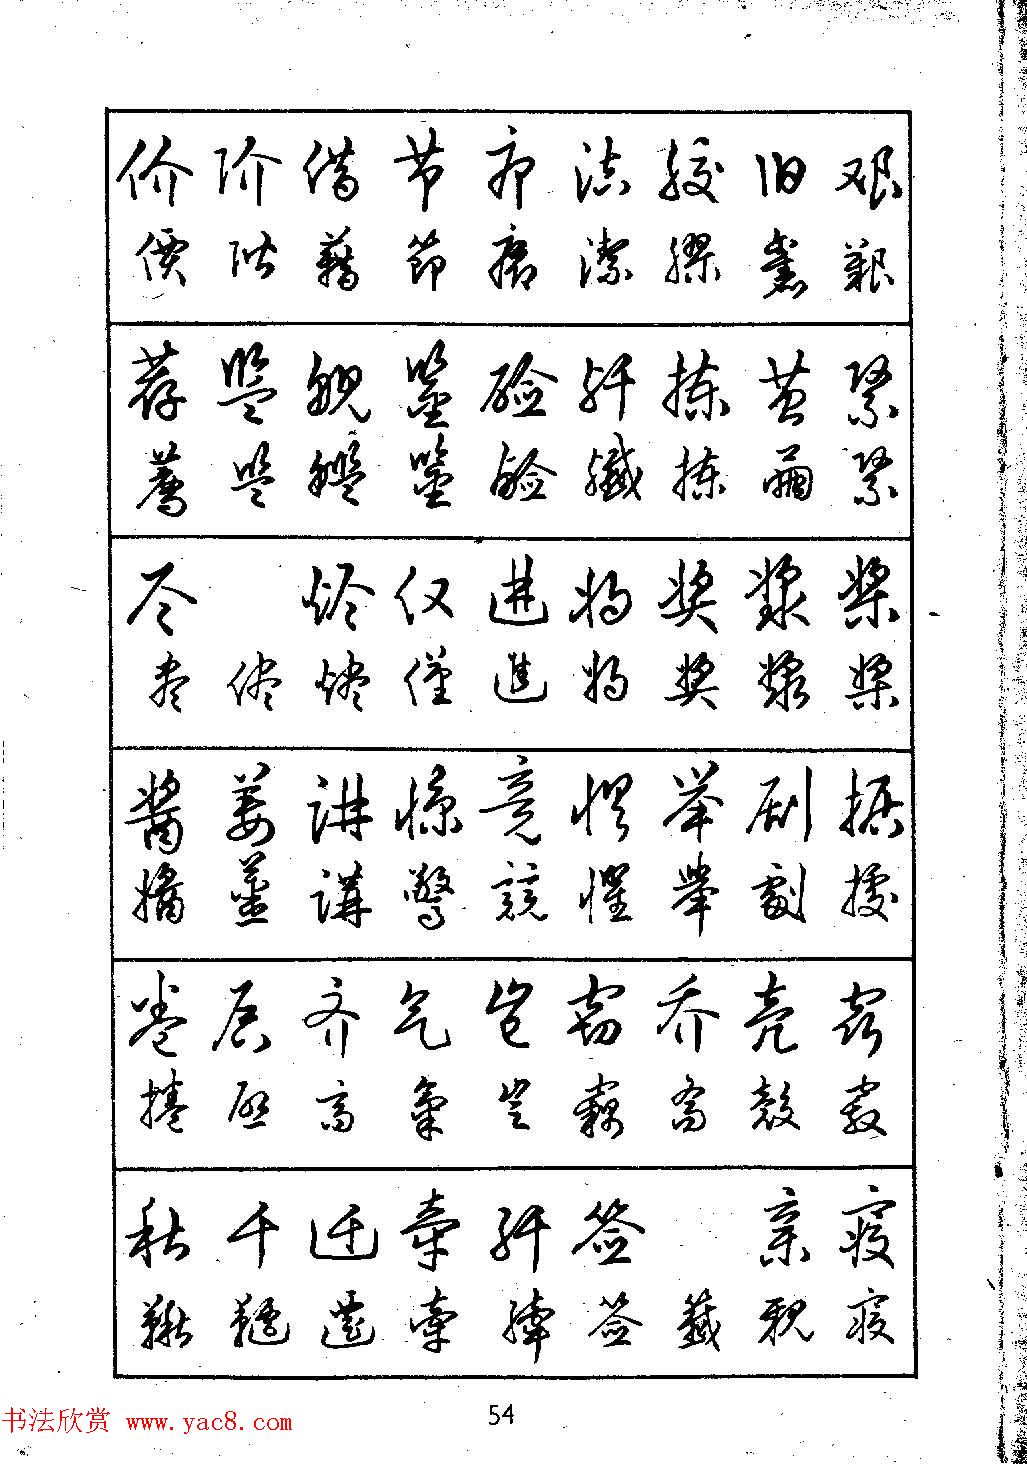 价 阶 借 节 疖 洁 胶 旧 艰
價 階 藉 節 癤 潔 膠 舊 艱
荐 监 舰 鉴 硷 歼 拣 茧 紧
薦 監 艦 鑒 鹼 殲 揀 繭 緊
尽 烬 仅 进 将 奖 浆 桨
盡 儘 燼 僅 進 將 獎 漿 槳
酱 姜 讲 惊 竞 惧 举 剧 据
醬 薑 講 驚 競 懼 舉 劇 據
卷 启 齐 气 岂 窃 乔 壳 窍
捲 啟 齊 氣 豈 竊 喬 殼 竅
秋 千 迁 牵 纤 签 亲 寝
鞦 韆 遷 牽 縴 簽 籤 親 寢
54
书法欣赏 www.yac8.com